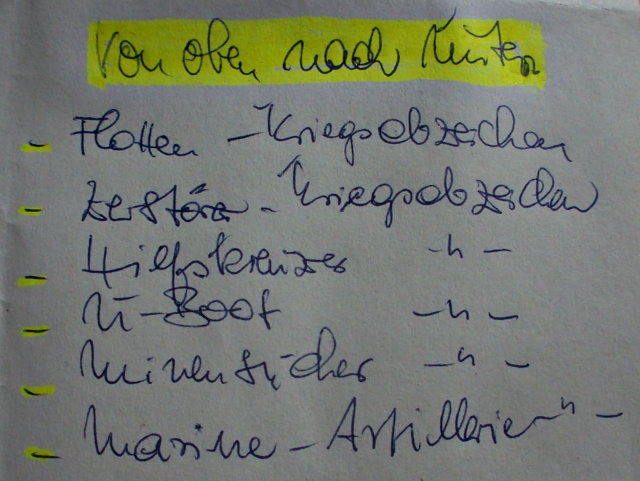 Von oben nach Unten
Flotten - Kriegsabzeichen
Zerstörer - Kriegsabzeichen
Hilfskreuzer -"-
U-Boot -"-
Minensucher -"-
Marine-Artillerie -"-